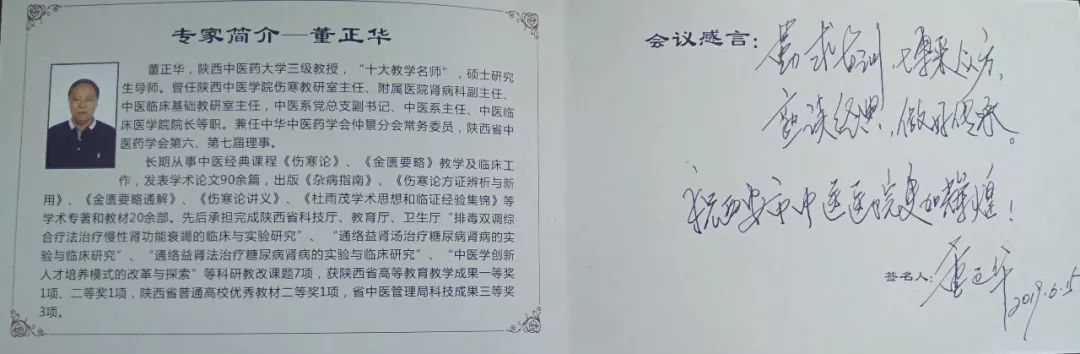 专家简介—董正华
董正华，陕西中医药大学三级教授，“十大教学名师”，硕士研究
生导师。曾任陕西中医学院伤寒教研室主任、附属医院肾病科副主任、
中医临床基础教研室主任，中医系党总支副书记、中医系主任、中医临
床医学院院长等职。兼任中华中医药学会仲景分会常务委员，陕西省中
医药学会第六、第七届理事。
长期从事中医经典课程《伤寒论》、《金匮要略》教学及临床工
作，发表学术论文90余篇，出版《杂病指南》、《伤寒论方证辨析与新
用》、《金匮要略通解》、《伤寒论讲义》、《杜雨茂学术思想和临证经验集锦》等
学术专著和教材20余部。先后承担完成陕西省科技厅、教育厅、卫生厅“排毒双调综
合疗法治疗慢性肾功能衰竭的临床与实验研究”、“通络益肾汤治疗糖尿病肾病的实
验与临床研究”、“通络益肾法治疗糖尿病肾病的实验与临床研究”、“中医学创新
人才培养模式的改革与探索”等科研教改课题7项，获陕西省高等教育教学成果一等奖
1项、二等奖1项，陕西省普通高校优秀教材二等奖1项，省中医管理局科技成果三等奖
3项。
会议感言：
勤求古训，博采众方，
读经典，做好传承。
祝西安市中医医院更加辉煌！
签名人：董正华
2019.6.15